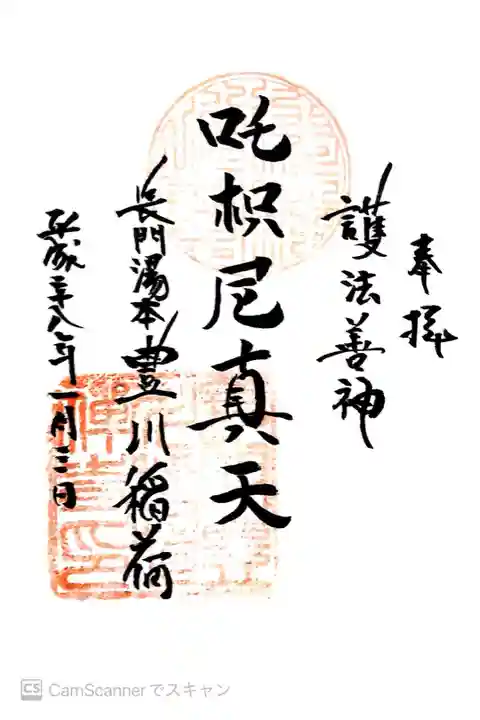 奉拝
護法善神
吒枳尼真天
長門湯本豊川稲荷
平成二十八年一月三日
CS CamScanner でスキャン